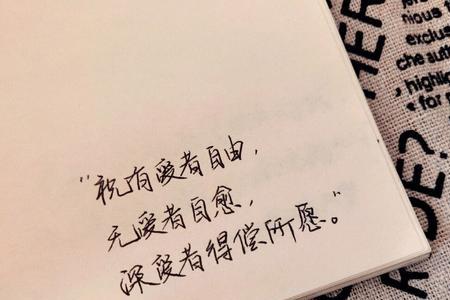 “祝有爱者自由，
无爱者自愈，
深爱者得偿所愿。”
HER
nious
exclus
the auth
highlig
for
DE?